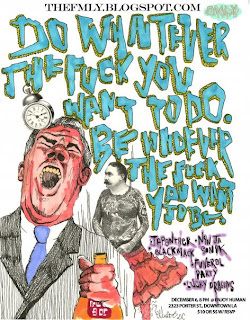 THEFMLY.BLOGSPOT.COM
DO WHATEVER
THE FUCK YOU
WANT TO DO.
BE WHOEVER
THE FUCK
YOU WANT
TO BE.
NINJA
BLACKJACK
FUNERAL
PARTY
LUCKY DRAGONS
DECEMBER 6, 8 PM @ ENJOY HUMAN
2323 PORTER ST., DOWNTOWN LA
$10 OR $5 W/ RSVP